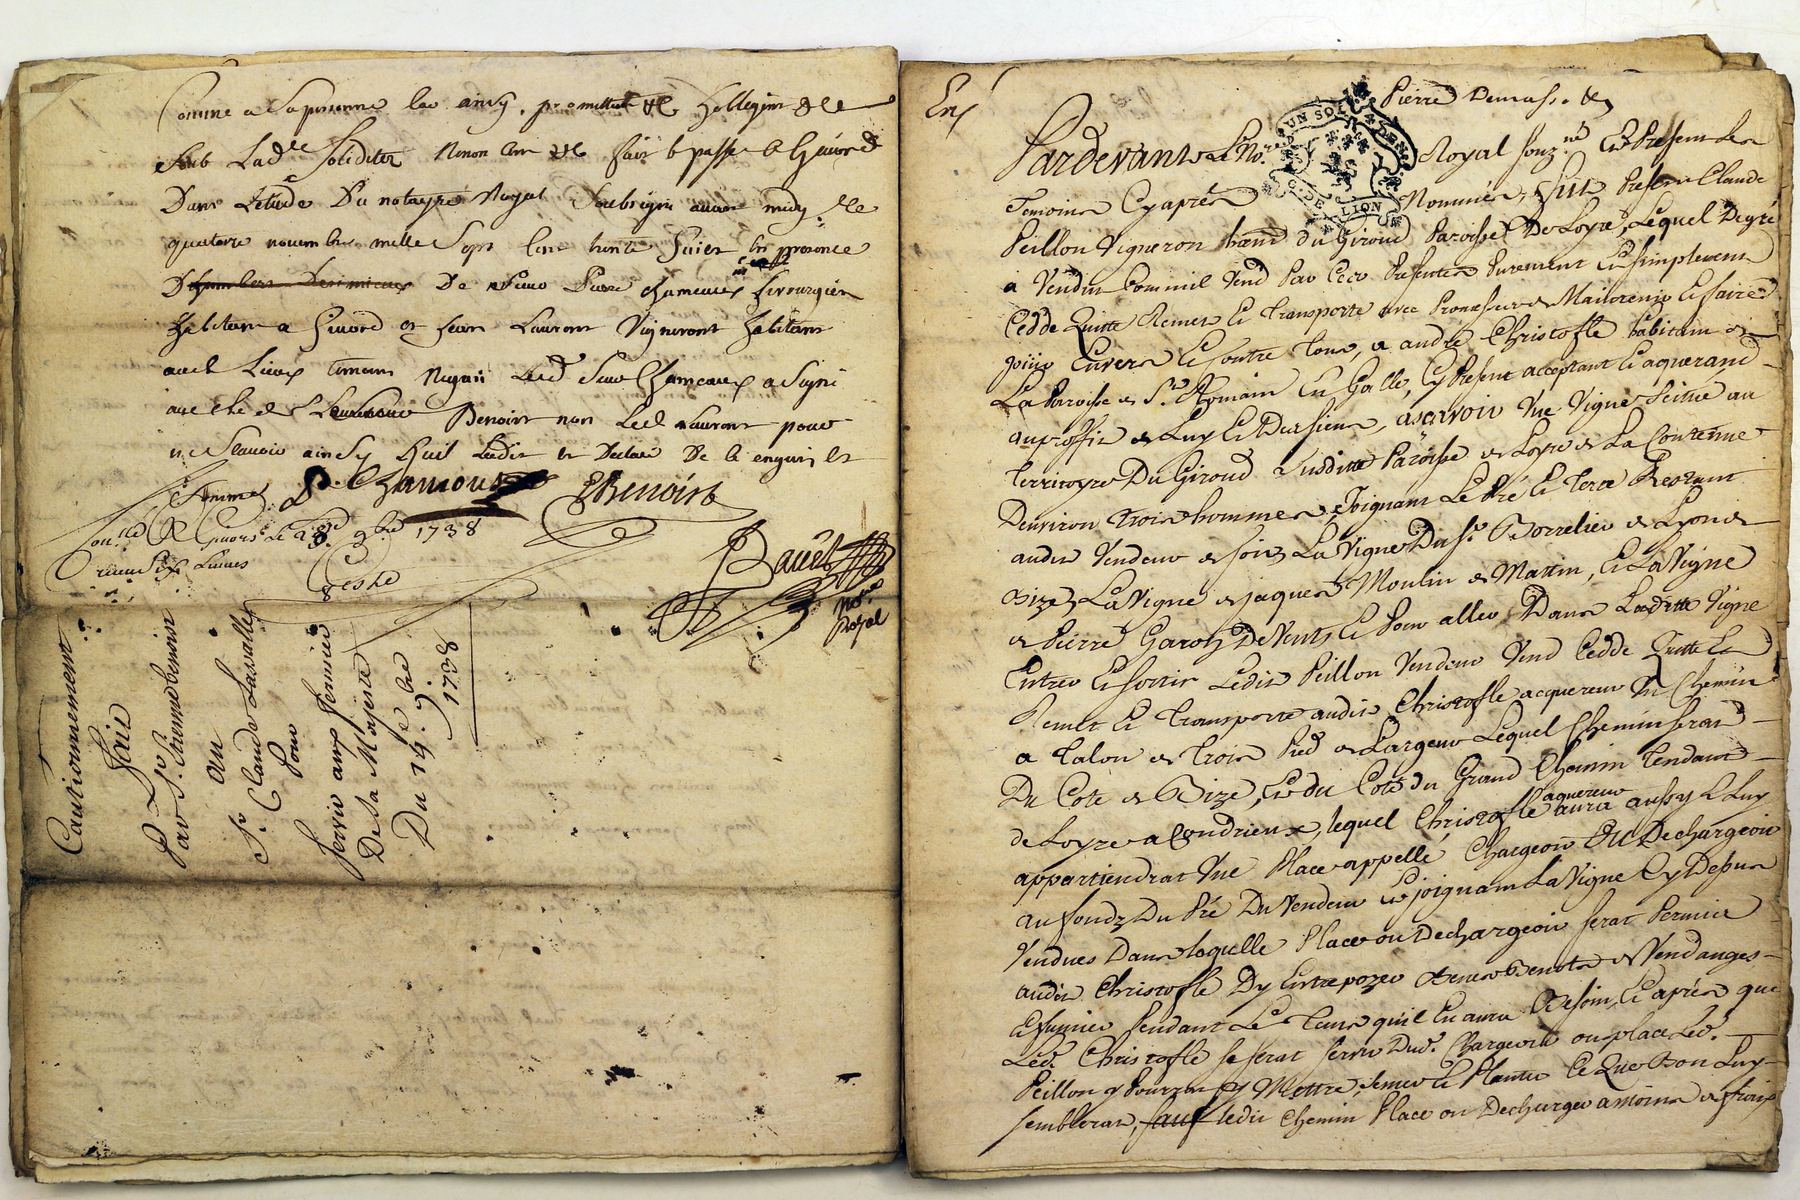 Comme a sa personne lao ainsy. promettant &c obligeant &c
Soub Lad.e Soliditer Renon &c fait & passé a Givord
Dans L'etude Du notayre Royal Soubsigné avant midy le
quatorze novembre mille Sept Cent trente huict en presence
De Sieur Pierre chameaux chirurgien
habitant a Givord et Jean Laurent Vigneront habitant
aud Lieux temoins Requis Led Sieur Chameaux a Signé
avec le d Benoist non Led Laurent pour
ne Scavoir ainsy quil La dit et Declaré De ce enquis et
Sommé P. Chamoux EBenoist
Con.lle A Givors Le 28 9bre 1738
receu Six Livres
Geste
Bauet
No.re
Royal
Cautionnement
fait
Par S.r Etienne benoist
au
S.r Claude Lassalle
Pour
servir aux fermier
De Sa Majesté
Du 14.e 9bre
1738
Pierre Demass.
UN SOL 4 DEN
G. DE LION
Pardevant Le No.re Royal souz.né Et Presents Les
Temoins Cy aprés Nommés, fut Present Claude
Peillon Vigneron habitant du Giroud Paroisse De Loyre, Lequel De gré
a Vendu Comm'il Vend Par Ces Presentes Purement Et simplement
Cedde Quitte Remet Et Transporte avec Promesse de Maintenir Et faire
joüir Envers Et Contre Tous, a andré Christofle habitant de
La Paroisse de S.t Romain En Galle, Cy Present acceptant Et aquerand
au proffit de Luy Et Des siens, ascavoir Vne Vigne Scitué au
Territoyre Du Giroud Susditte Paroisse de Loyre de La Contenue
Denviron Trois hommes, Joignant Le Pré Et Terre Restant
audit Vendeur de soir, La Vigne Du S.r Borrelier de Lyon de
Bize, La Vigne de jaques Moulin de Mattin, Et La Vigne
de Pierre Garon De Vent, Et Pour aller Dans Laditte Vigne
Entrer Et sortir Ledit Peillon Vendeur Vend Cedde Quitte
Remet Et Transporte audit Christofle acquereur Un Chemin
a Talon de Trois Pied de Largeur Lequel Chemin serat
Du Cote de Bize, Et du Coté du Grand Chemin Tendant
de Loyre a Condrieux, lequel Christofle aquereur aura aussy & Luy
appartiendrat Vne Place appellé Chargeoir Ou Dechargeoir
au fondz Du Pré Du Vendeur Et joignant La Vigne Cy Dessus
Vendues Dans laquelle Place ou Dechargeoir serat Permis
audit Christofle D'y Entreposer Benots de Vendanges
Et fumier Pendant Le Tems qu'il En aura Besoin, Et aprés que
Led. Christofle se serat servi Dud. Chargeoir ou place Led.
Peillon y Pourra y Mettre, semer Et Planter Ce Que Bon Luy
semblerat, sauf ledit Chemin Place ou Decharger a moins de frais